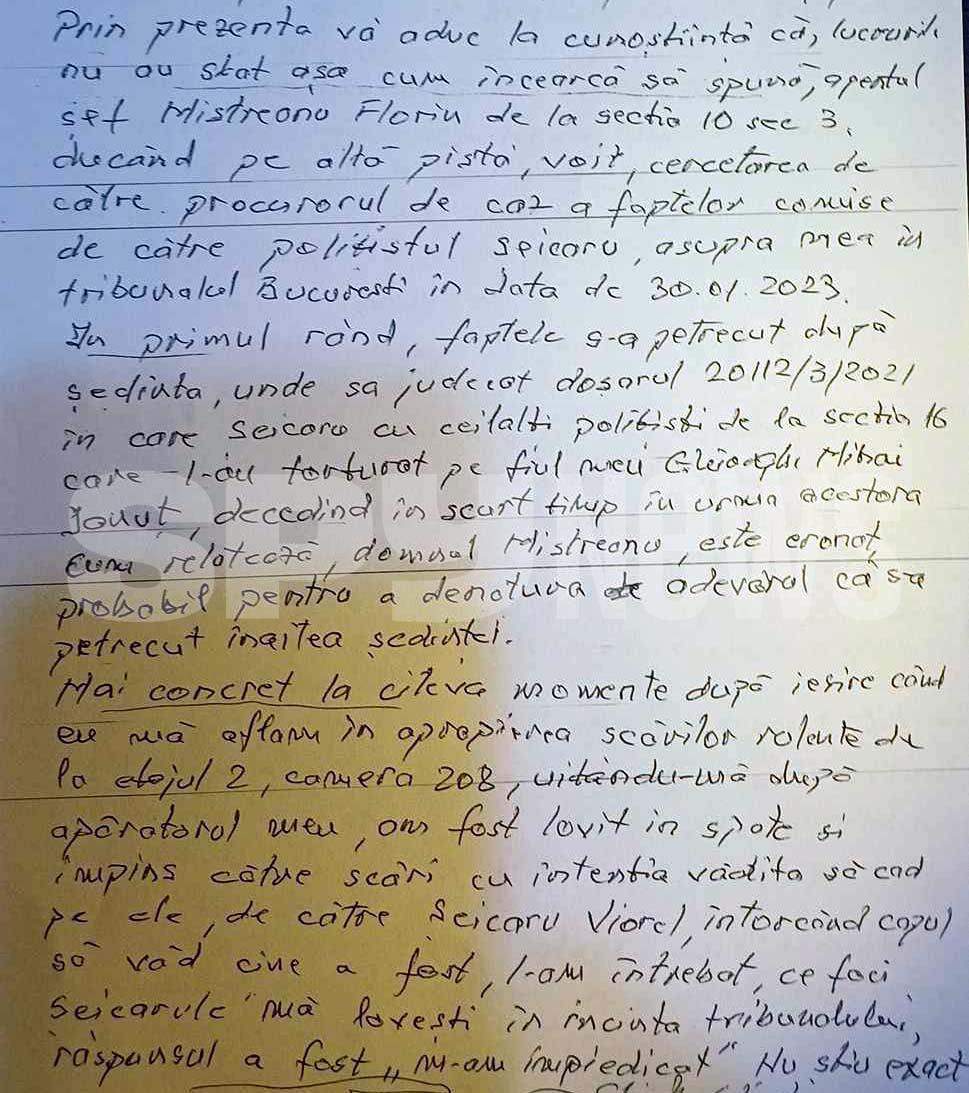 Prin prezenta vă aduc la cunoștiintă că, lucrurile
nu au stat așa cum încearcă să spună, agentul
șef Mistreanu Florin de la sectia 10 sec 3,
ducând pe altă pistă, voit, cercetarea de
către procurorul de caz a faptelor comise
de către politistul Seicaru, asupra mea in
tribunalul Bucuresti in data de 30.01.2023.
In primul rând, faptele s-a petrecut după
ședința, unde sa judecat dosarul 20112/3/2021
in care Seicaru cu ceilalti politisti de la sectia 16
care l-au torturat pe fiul meu Gheorghe Mihai
Ionut, decedind in scurt timp in urma acestora
Cum relatează, domnul Mistreanu, este eronat,
probabil pentru a denatura adevarul că s-a
petrecut inaitea ședintei.
Mai concret la citeva momente după iesire când
eu mă aflam in apropierea scărilor rulante de
la etajul 2, camera 208, uitându-mă după
apăratorul meu, am fost lovit in spate si
împins către scări cu intentia vădita să cad
pe ele, de către Seicaru Viorel, intorcând capul
să văd cine a fost, l-am întrebat, ce faci
Seicarule "mă lovesti în incinta tribunalului,
răspunsul a fost „m-am împiedicat" Nu știu exact
SPYNEWS